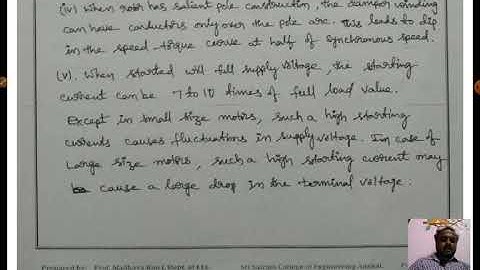 (iv) When rotor has salient pole construction, the damper winding
can have conductors only over the pole arc. This leads to dip
in the speed-torque curve at half of synchronous speed.
(v). When started with full supply voltage, the starting
current can be 7 to 10 times of full load value.
Except in small size motors, such a high starting
currents causes fluctuations in supply voltage. In case of
large size motors, such a high starting current may
cause a large drop in the terminal voltage.
Prepared by: Prof. Dept. of EEE, Sri Sairam College of Engineering Anekal,